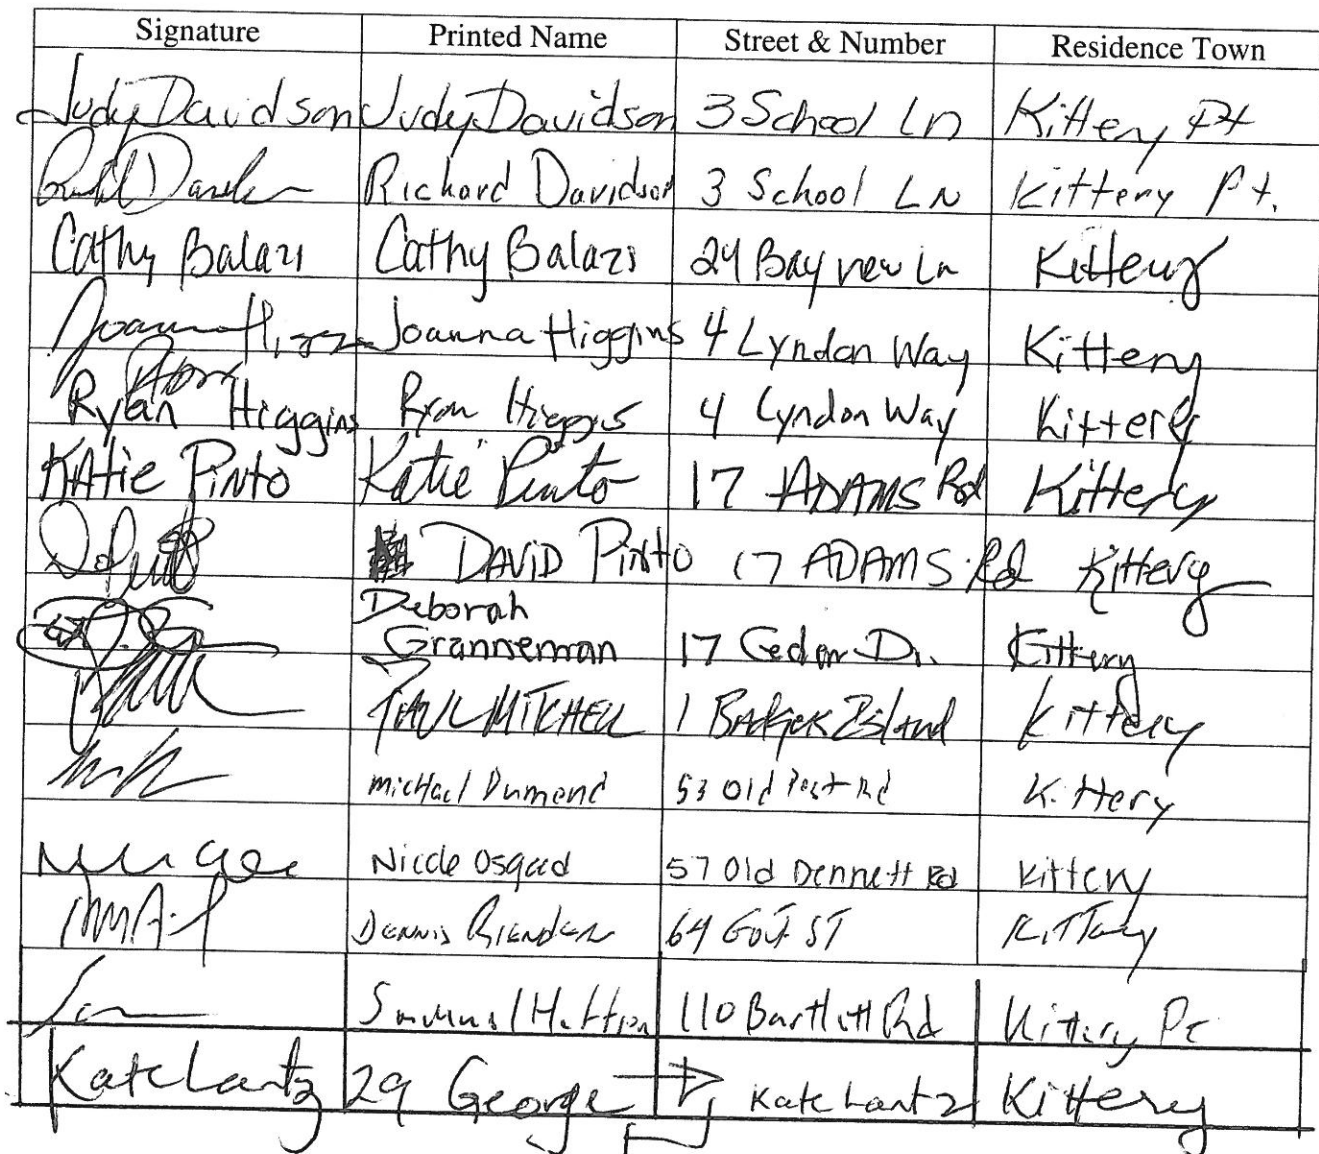 Signature Printed Name Street & Number Residence Town
Judy Davidson Judy Davidson 3 School Ln Kittery Pt
Richard Davidson 3 School LN Kittery Pt.
Cathy Balazs Cathy Balazs 24 Bayview Ln Kittery
Joanna Higgins 4 Lyndon Way Kittery
Ryan Higgins Ryan Higgins 4 Lyndon Way Kittery
KAtie PiNto Katie Pinto 17 ADAMS Rd Kittery
DAVID PINTO 17 ADAMS Rd Kittery
Deborah
Granneman 17 Cedar Dr. Kittery
PAUL MITCHELL 1 BAdgeR Island Kittery
Michael Dumond 53 Old Post Rd Kittery
Nicole Osgood 57 Old Dennett Rd Kittery
Dennis 64 ST Kittery
Samuel 110 Bartlett Rd Kittery Pt
Kate Lantz 29 George Kate Lantz Kittery